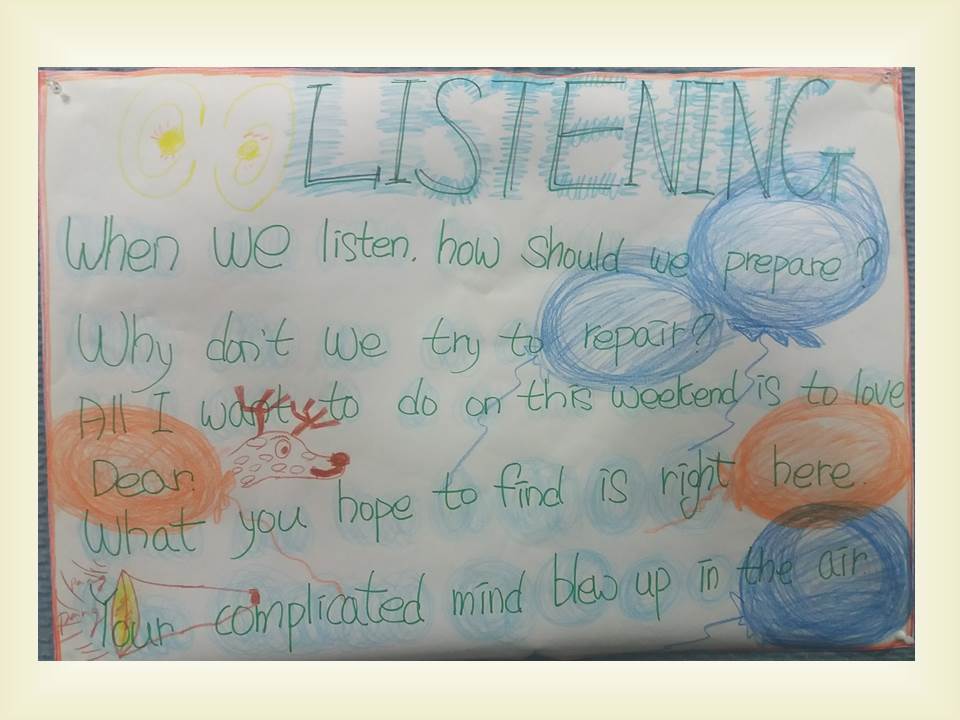 LISTENING
When we listen, how should we prepare?
Why don't we try to repair?
All I want to do on this weekend is to love
Dear.
What you hope to find is right here.
Your complicated mind blew up in the air